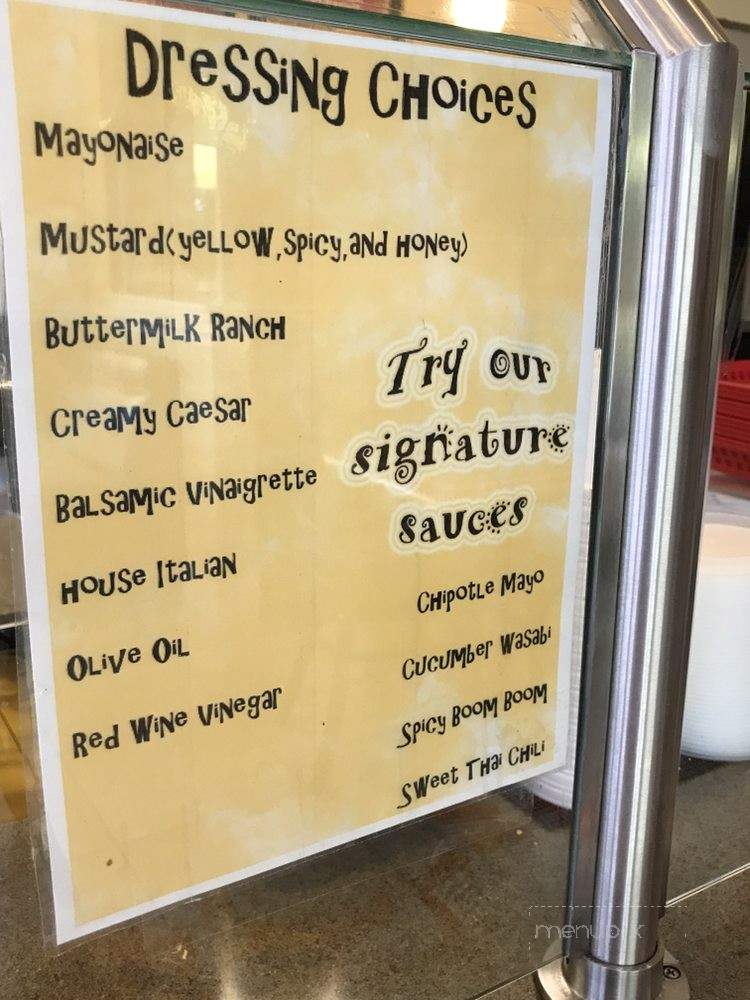 Dressing Choices
Mayonaise
Mustard(yellow,spicy,and honey)
Buttermilk Ranch
Creamy Caesar
Balsamic Vinaigrette
House Italian
Olive Oil
Red Wine Vinegar
Try our
signature
sauces
Chipotle Mayo
Cucumber Wasabi
Spicy Boom Boom
Sweet Thai Chili